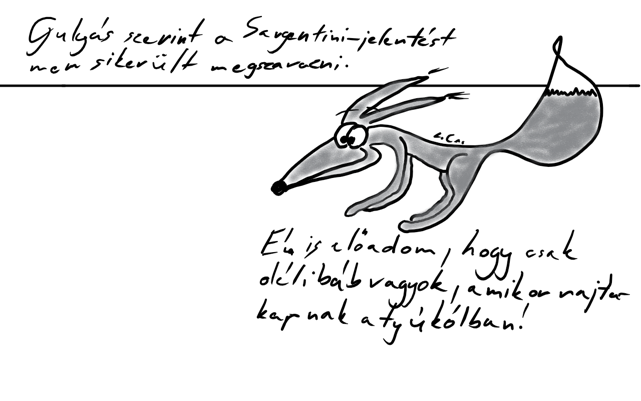 Gulyás szerint a Sargentini-jelentést
nem sikerült megszavazni.
Én is előadom, hogy csak
délibáb vagyok, amikor rajta
kapnak a tyúkólban!